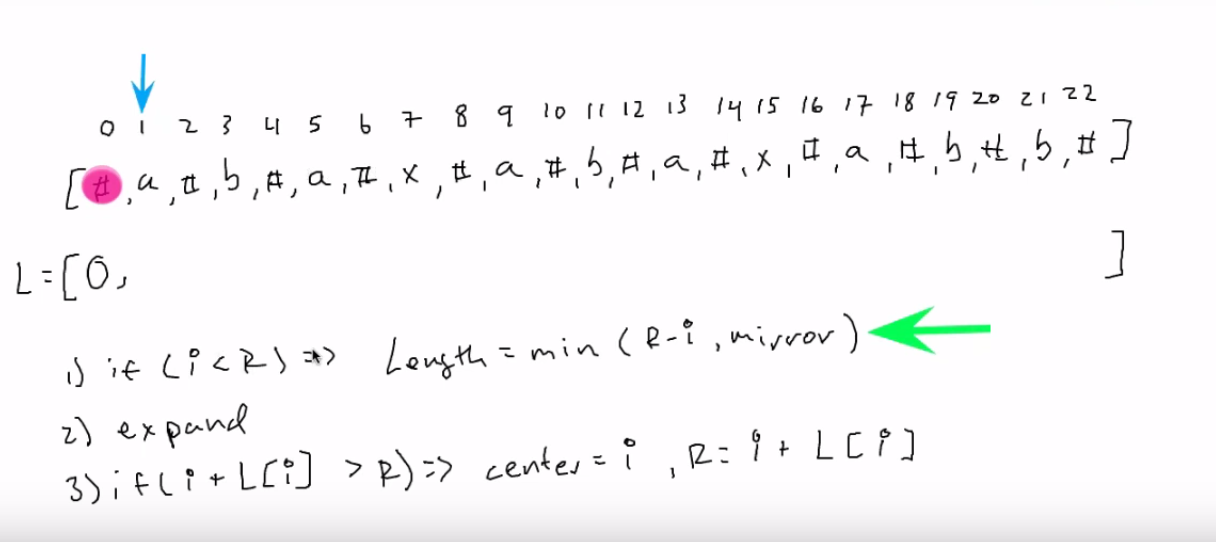 0 1 2 3 4 5 6 7 8 9 10 11 12 13 14 15 16 17 18 19 20 21 22
[#,a,#,b,#,a,#,x,#,a,#,b,#,a,#,x,#,a,#,b,#,b,#]
L=[0, ]
1) if (i<R) => Length = min (R-i, mirror)
2) expand
3) if(i+L[i] > R) => center = i, R = i + L[i]